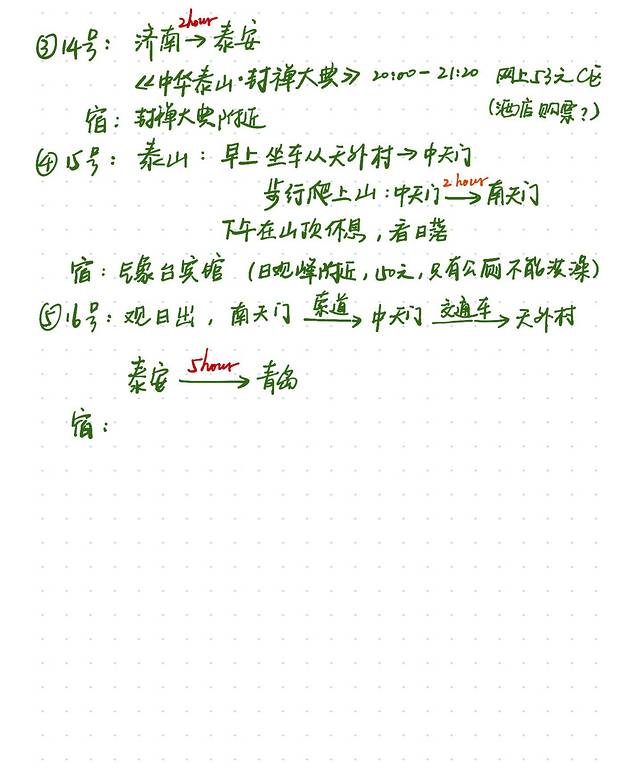 ③14号: 济南 2hour→ 泰安
《中华泰山·封禅大典》 20:00-21:20 网上53元C区
(酒店购票?)
宿: 封禅大典附近
④15号: 泰山: 早上坐车从天外村→中天门
步行爬上山:中天门 2hour→ 南天门
下午在山顶休息,看日落
宿: 气象台宾馆 (日观峰附近,150元,只有公厕不能洗澡)
⑤16号: 观日出, 南天门 索道→ 中天门 交通车→ 天外村
泰安 5hour→ 青岛
宿: